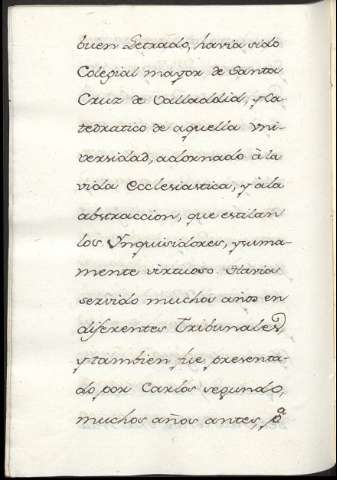 buen Letrado, havia sido
Colegial mayor de Santa
Cruz de Valladolid, y Ca-
tedratico de aquella Uni-
versidad, adornado à la
vida Ecclesiastica, y à la
abstraccion, que estilan
los Ynquisidores, y suma-
mente virtuoso. Havia
servido muchos años en
diferentes Tribunales,
y tambien fue presenta-
do por Carlos segundo,
muchos años antes, pª